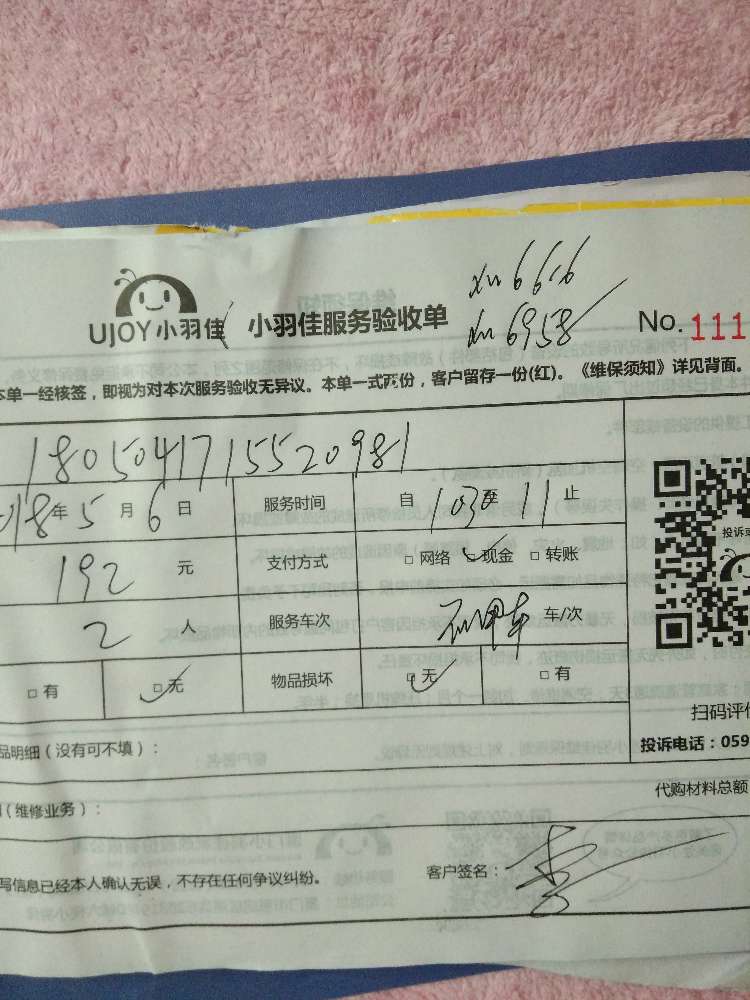 xm 6616
UJOY小羽佳 小羽佳服务验收单 xm 6958 No. 111
本单一经核签，即视为对本次服务验收无异议。本单一式两份，客户留存一份(红)。《维保须知》详见背面。
1805041715520981
18年5月6日 服务时间 自 1030 至 11 止
192 元 支付方式 □ 网络 □ 现金 □ 转账
2 人 服务车次 车/次
□ 有 □ 无 物品损坏 □ 无 □ 有
扫码评
品明细（没有可不填）： 投诉电话：059
（维修业务）： 代购材料总额
写信息已经本人确认无误，不存在任何争议纠纷。 客户签名：